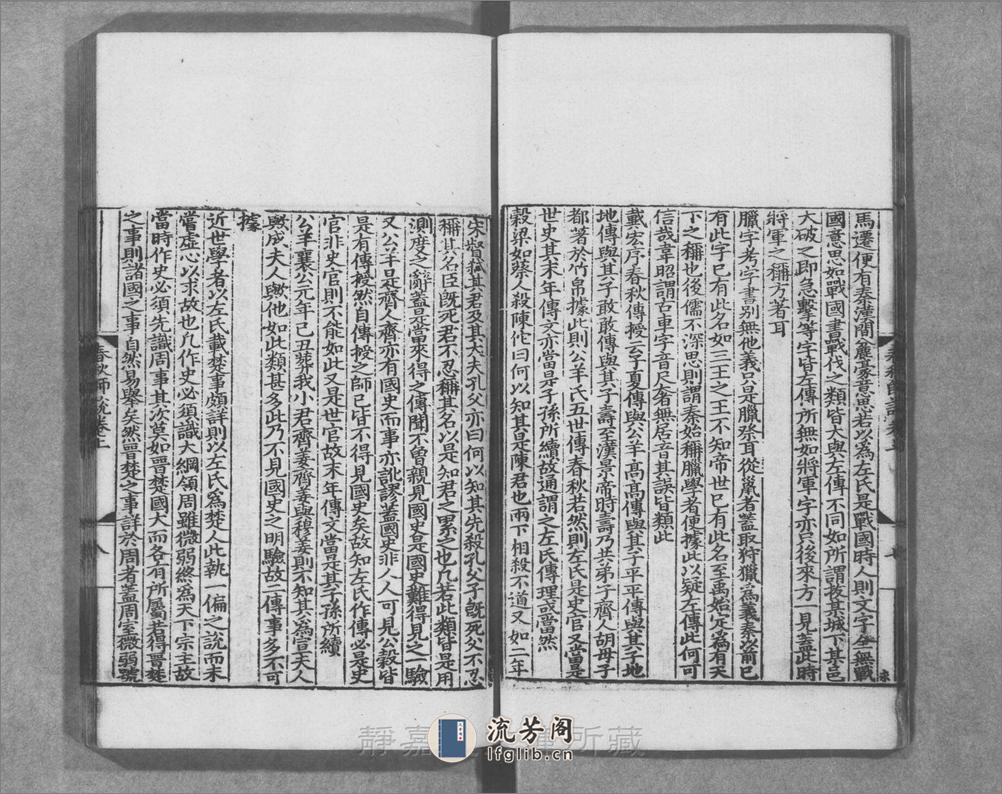 馬遷便有秦漢間麤豪意思若以為左氏是戰國時人則文字全無戰
國意思如戰國書戰伐之類皆大與左傳不同如所謂拔其城下其邑
大破之即急擊等字皆左傳所無如將軍字亦只後來方一見蓋此時
將軍之稱方著耳
臘字考字書別無他義只是臘祭耳從巤者蓋取狩獵為義秦以前已
有此字已有此名如三王之王不知帝世已有此名至禹始定為有天
下之稱也後儒不深思則謂秦始稱臘學者便據此以疑左傳此何可
信哉韋昭謂古車字音尺奢無居音其誤皆類此
戴宏序春秋傳授云子夏傳與公羊高高傳與其子平平傳與其子地
地傳與其子敢敢傳與其子壽至漢景帝時壽乃共弟子齊人胡毋子
都著於竹帛據此則公羊氏五世傳春秋若然則左氏是史官又當是
世史其末年傳文亦當是子孫所續故通謂之左氏傳理或當然
穀梁如蔡人殺陳佗曰何以知其是陳君也兩下相殺不道又如二年
宋督弒其君及其大夫孔父亦曰何以知其先殺孔父子既死父不忍
稱其名臣既死君不忍稱其名以是知君之累之也凡若此類皆是用
測度之辭蓋是當來得之傳聞不曾親見國史是國史難得見之一驗
又公羊是齊人齊亦有國史而事亦訛謬蓋國史非人人可見公穀皆
是有傳授然自傳授之師已皆不得見國史矣故知左氏作傳必是史
官非史官則不能如此又是世官故末年傳文當是其子孫所續
公羊襄公元年已丑葬我小君齊姜齊姜與穆姜則不知其為宣夫人
與成夫人與他如此類甚多此乃不見國史之明驗故二傳事多不可
據
近世學者以左氏載楚事頗詳則以左氏為楚人此執一偏之說而未
嘗虛心以求故也凡作史必須識大綱領周雖微弱終為天下宗主故
當時作史必須先識周事其次莫如晉楚國大而各有所屬若得晉楚
之事則諸國之事自然易舉矣然晉楚之事詳於周者蓋周室微弱號
春秋師說卷上
八
流芳阁
lfglib.cn